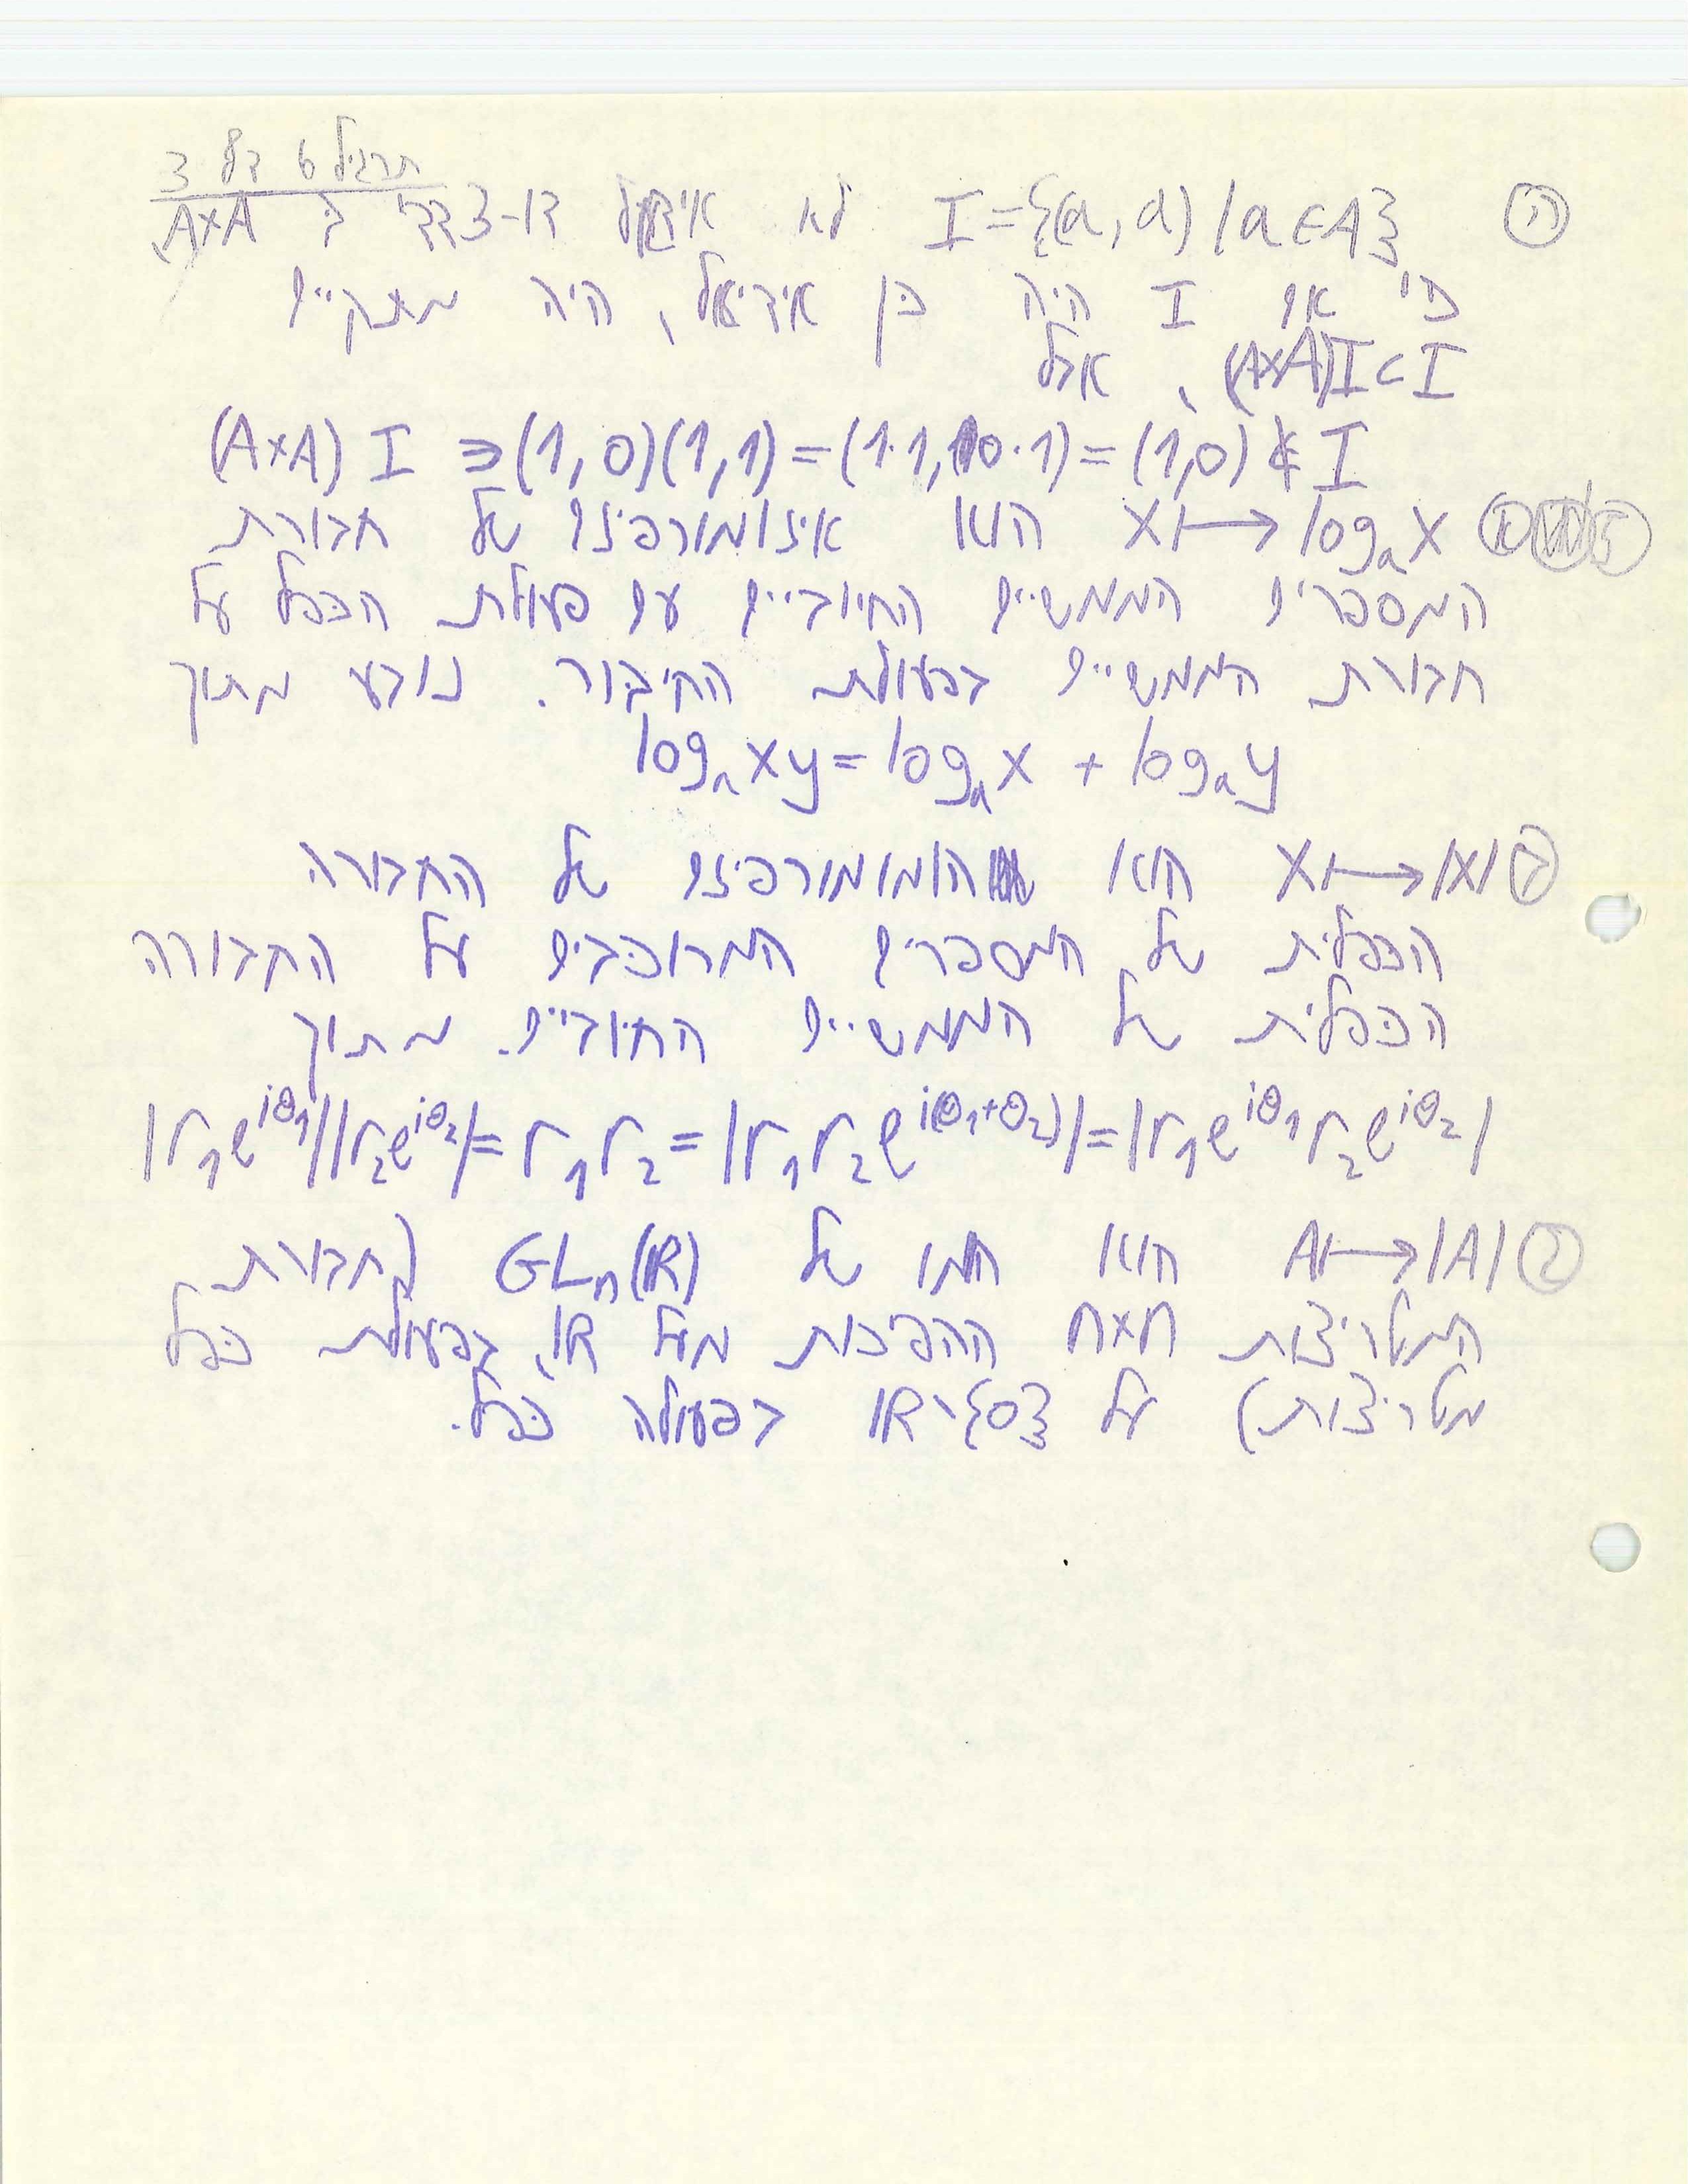 תרגיל 6 דף 3
ה I={(a,a)|a∈A} לא אידיאל דו-צדדי ב A×A
כי אם I היה כן אידיאל, היה מתקיים
(A×A)I⊂I, אבל
(A×A) I ∋(1,0)(1,1)=(1·1,0·1)=(1,0)∉I
x↦logₐx הוא איזומורפיזם של חבורת
המספרים הממשיים החיוביים עם פעולת הכפל על
חבורת הממשיים בפעולת החיבור. נובע מתוך
logₐxy=logₐx + logₐy
ב x↦|x| הוא הומומורפיזם של החבורה
הכפלית של המספרים המרוכבים על החבורה
הכפלית של הממשיים החיוביים. מתוך
|r₁e^{iθ₁}||r₂e^{iθ₂}|=r₁r₂=|r₁r₂e^{i(θ₁+θ₂)}|=|r₁e^{iθ₁}r₂e^{iθ₂}|
ג A↦|A| הוא הומו של GLₙ(ℝ) (חבורת
המטריצות n×n ההפיכות מעל ℝ, בפעולת כפל
מטריצות) על ℝ\{0} בפעולה כפל.